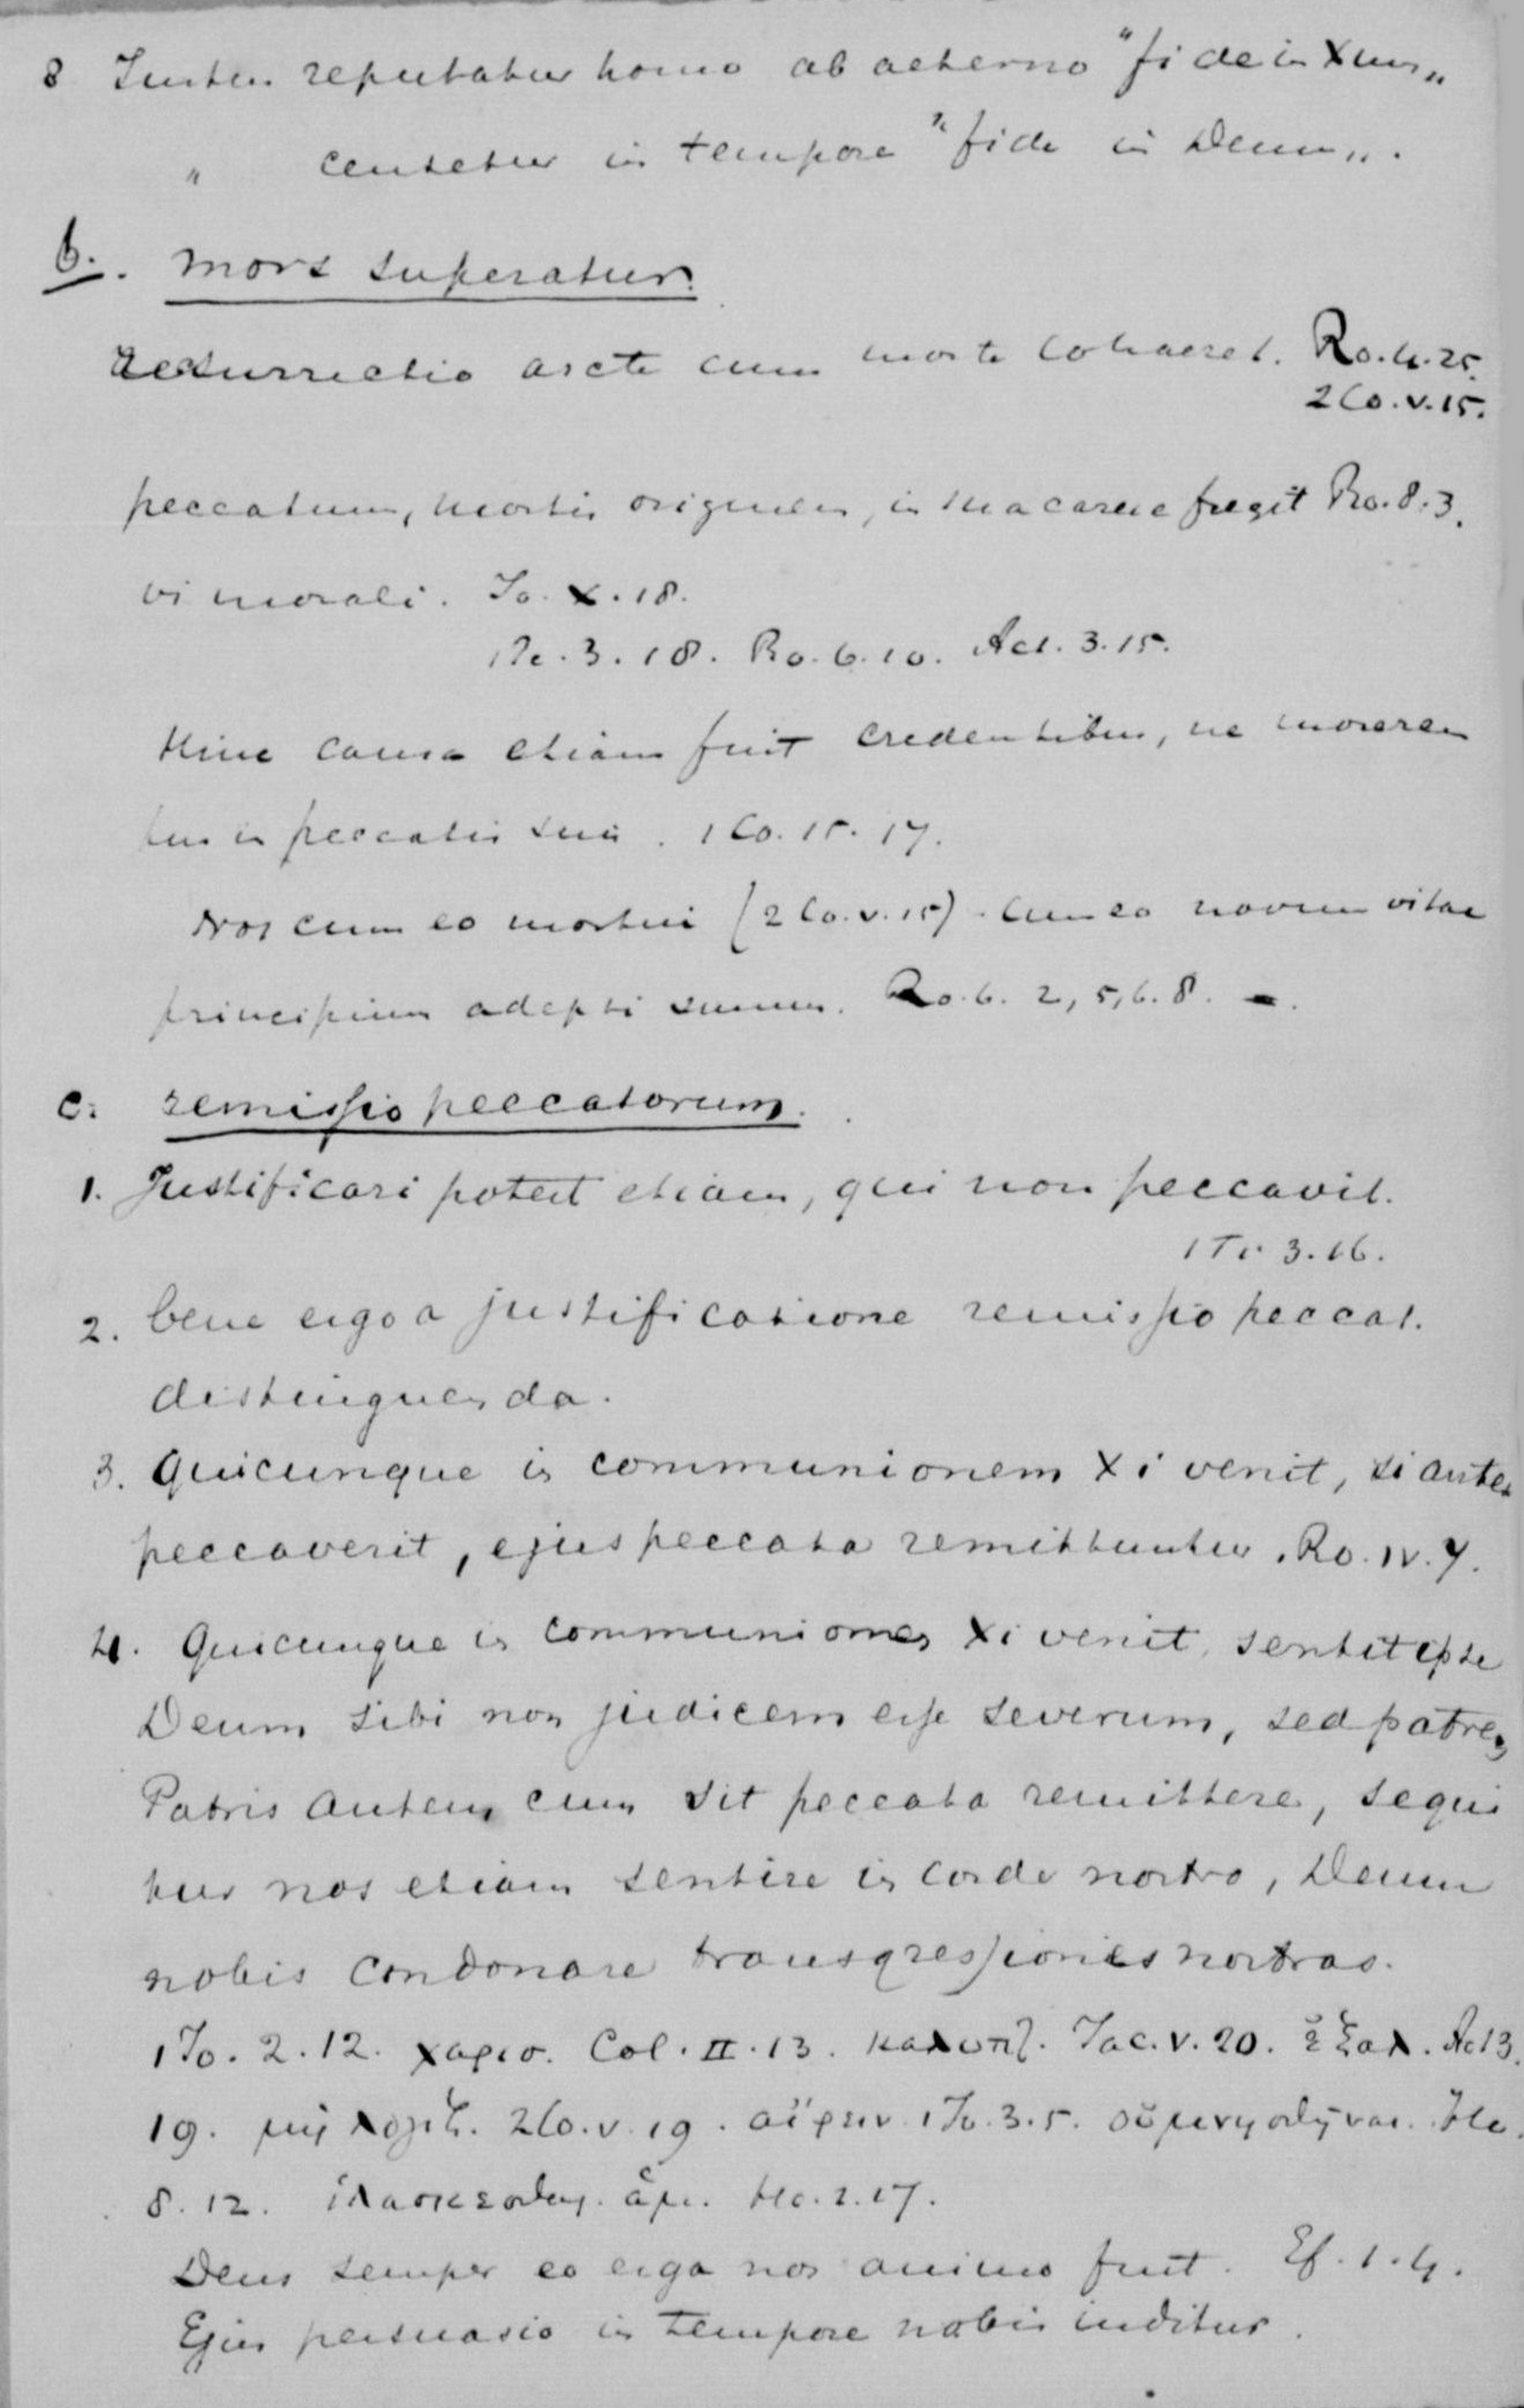 8 Justus reputatur homo ab aeterno "fide in Xum„
" censetur in tempore "fide in Deum„.
b. mors superatur.
Resurrectio arcte cum morte cohaeret. Ro. 4. 25.
2 Co. v. 15.
peccatum, mortis originem, in sua carne fregit Ro. 8. 3.
vi morali. Jo. X. 18.
1 Pe. 3. 18. Ro. 6. 10. Act. 3. 15.
Hinc causa etiam fuit credentibus, ne moreren
tur in peccatis suis. 1 Co. 15. 17.
Nos cum eo mortui (2 Co. v. 15). Cum eo novum vitae
principium adepti sumus. Ro. 6. 2, 5, 6. 8.
c. remissio peccatorum.
1. Justificari potest etiam, qui non peccavit.
1 Ti. 3. 16.
2. bene ergo a justificatione remissio peccat.
distinguenda.
3. Quicunque in communionem Xi venit, si antea
peccaverit, ejus peccata remittuntur. Ro. IV. 7.
4. Quicunque in communionem Xi venit, sentit ipse
Deum sibi non judicem esse severum, sed patrem
Patris autem cum sit peccata remittere, sequi
tur nos etiam sentire in corde nostro, Deum
nobis condonare transgressiones nostras.
1 Jo. 2. 12. χαρισ. Col. II. 13. καλυπτ. Jac. v. 20. ἐξαλ. Act 3.
19. μὴ λογιζ. 2 Co. v. 19. αἴρειν 1 Jo. 3. 5. οὐ μενησθῆναι. He.
8. 12. ἱλασκεσθαι ἁμ. He. 2. 17.
Deus semper eo erga nos animo fuit. Ef. 1. 4.
Ejus persuasio in tempore nobis inditur.